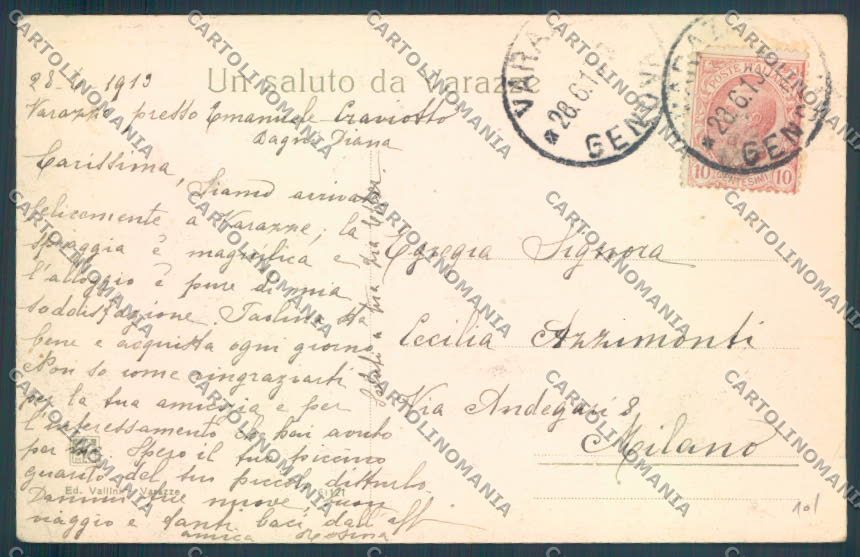 Un saluto da Varazze
28-6-1913
Varazze presso Emanuele Craviotto
Bagni Diana
Carissima,
Siamo arrivati
felicemente a Varazze; la
spiaggia è magnifica e
l'alloggio è pure di mia
soddisfazione. Paolino sta
bene e acquista ogni giorno
Non so come ringraziarti
per la tua amicizia e per
l'interessamento che hai avuto
per me. Spero il tuo piccino
guarito del suo piccolo disturbo.
Dammi tue nuove, buon
viaggio e tanti baci dall'aff
amica Rosina
Saluti a tua
Egregia Signora
Cecilia Azzimonti
Via Andegari 8
Milano
VARAZZE
28.6.13
GENOVA
VARAZZE
28.6.13
GENOVA
POSTE ITALIANE
10 CENTESIMI 10
Ed. Vallin Varazze
51121
10/
CARTOLINOMANIA